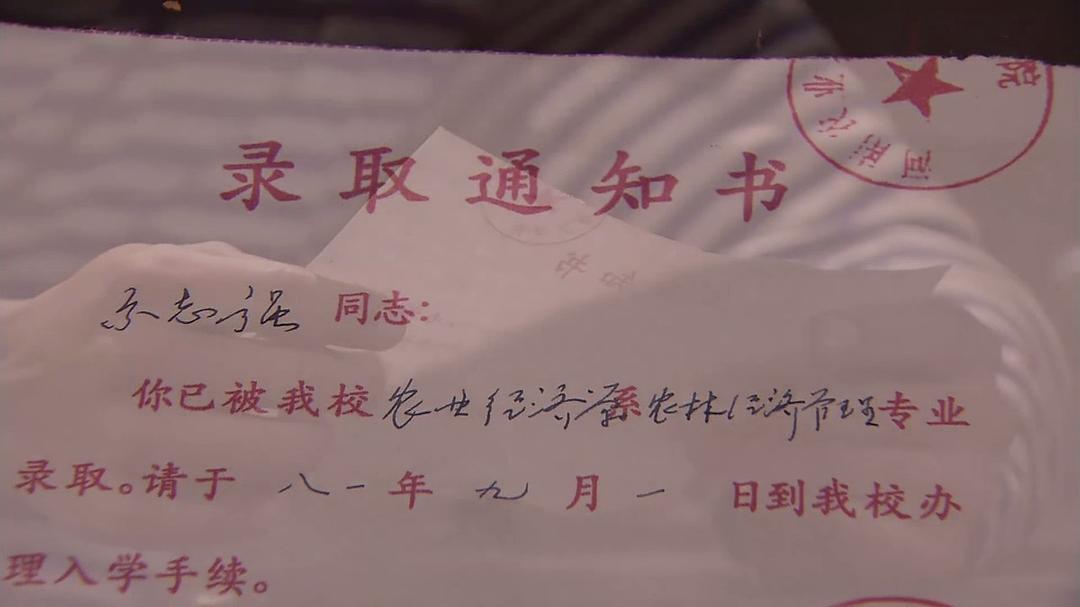 院
河南农业
录取通知书
志强同志:
你已被我校农业经济系农林经济管理专业
录取。请于八一年九月一日到我校办
理入学手续。